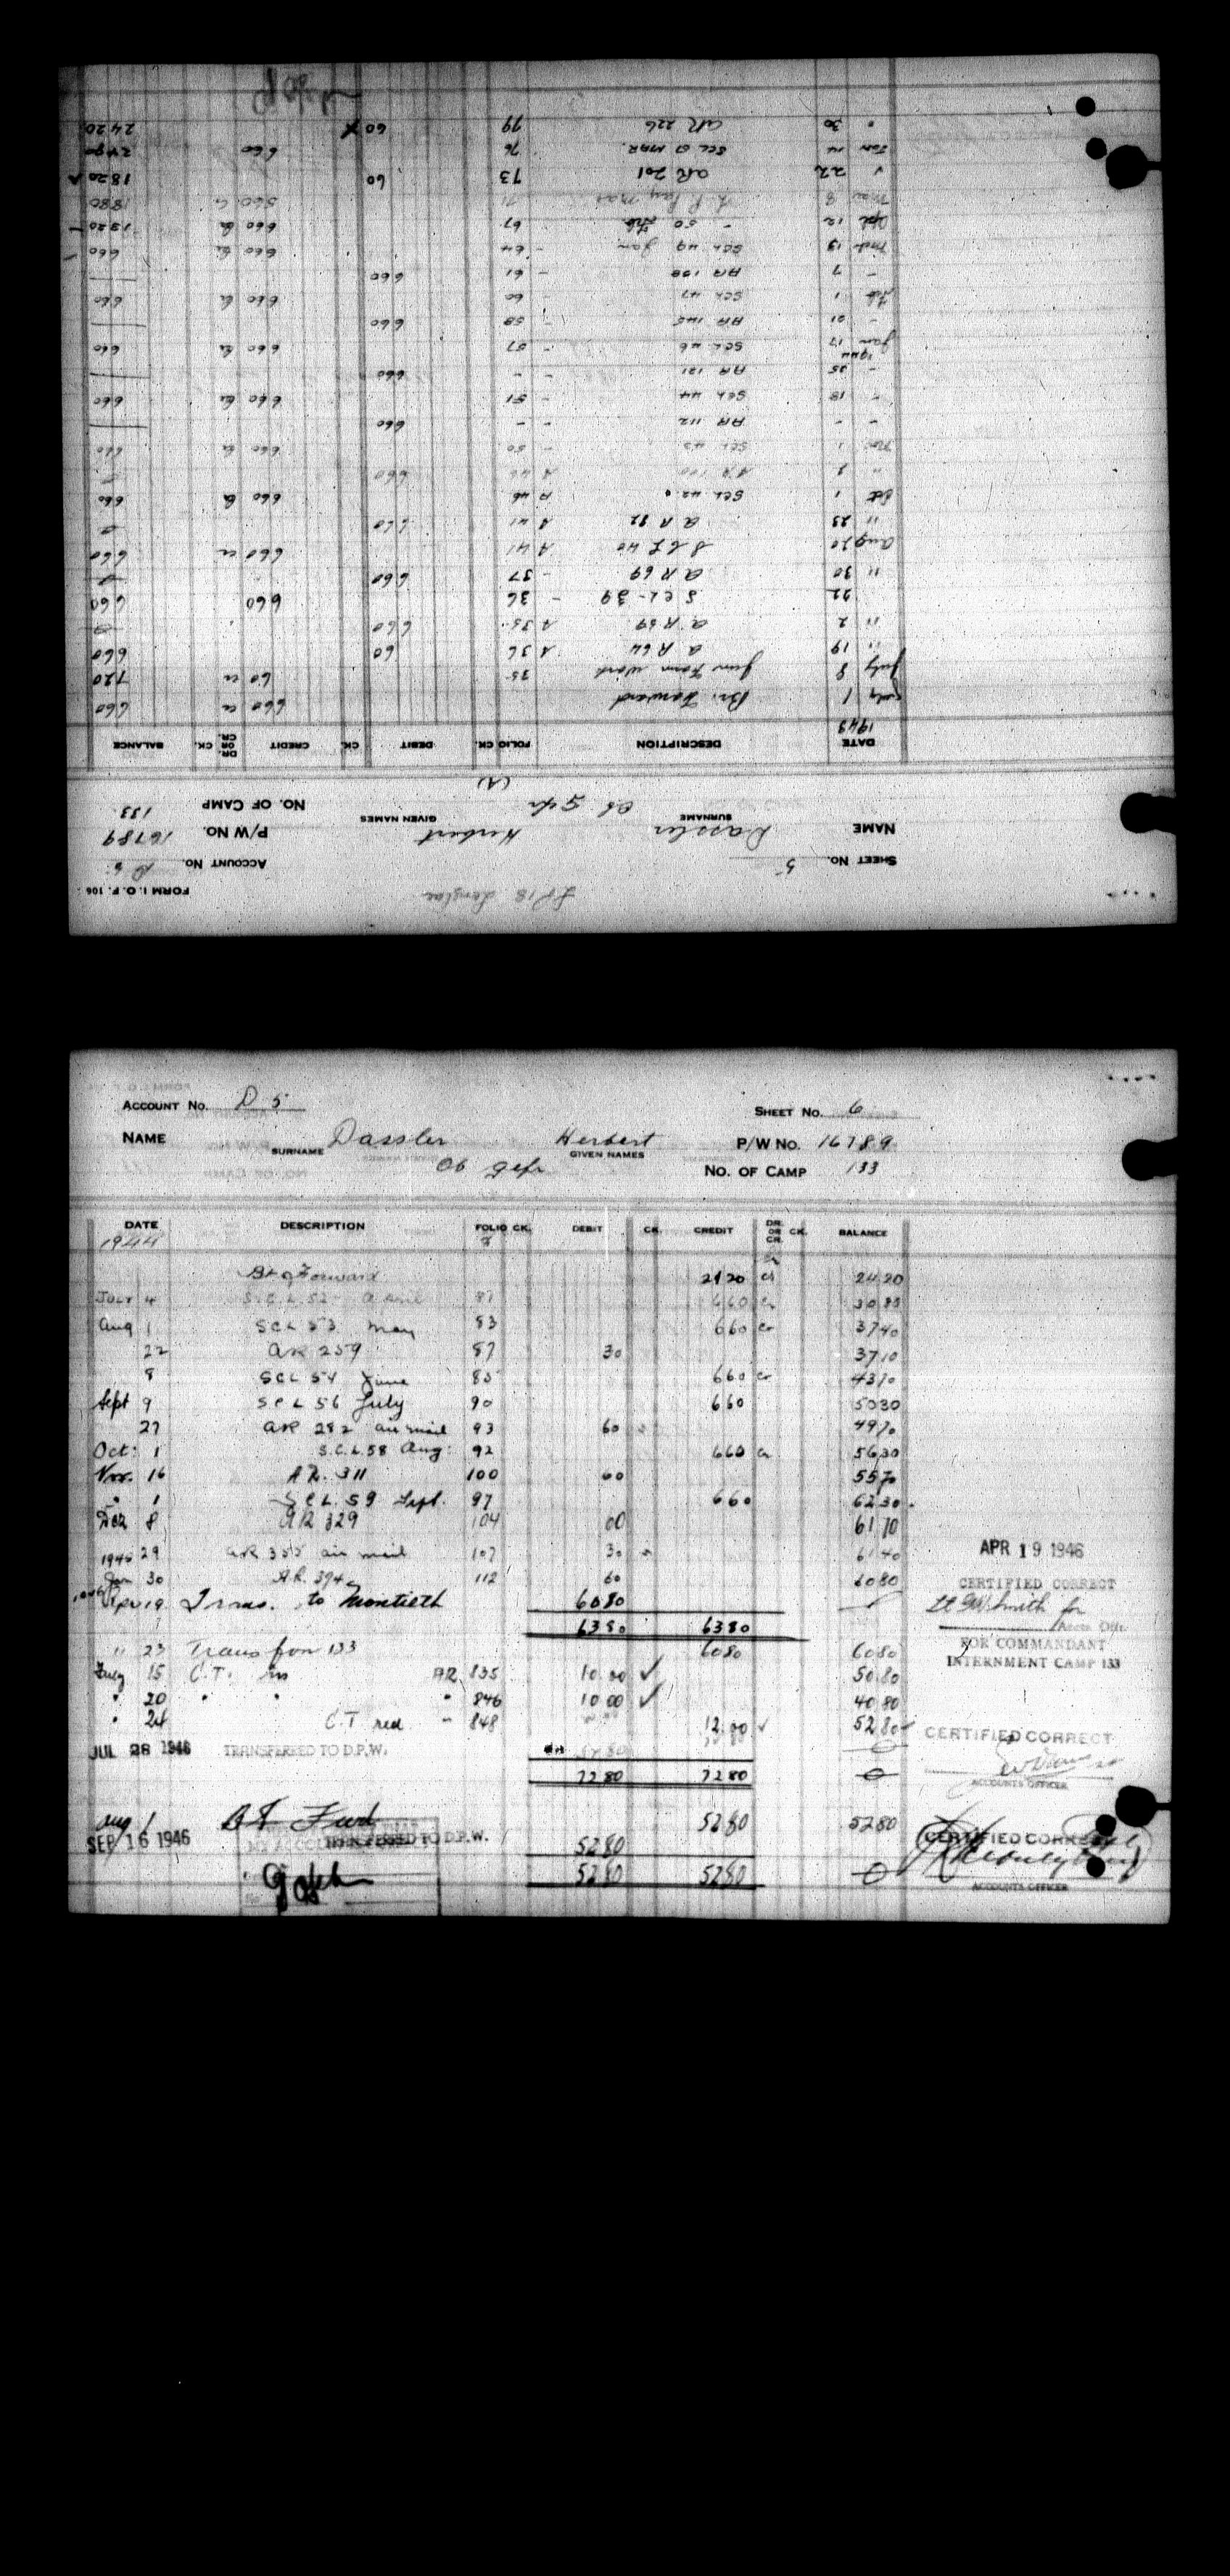 FORM I. O. F. 106
L P 18 Longlac
SHEET NO. 5 ACCOUNT NO. D 5
NAME Dassler Herbert P/W NO. 16789
SURNAME GIVEN NAMES
Ob Gefr NO. OF CAMP 133
(A)
DATE DESCRIPTION FOLIO CK. DEBIT CK. CREDIT DR. OR CR. CK. BALANCE
1943
July 1 Br. Forward 660 cr 660
July 8 June Farm work 35 60 cr 720
" 19 a R 64 A 36 60 660
" 2 a R 69 A 35 660
22 S CL - 39 - 36 660 660
" 30 a R 69 - 37 660
Aug 20 S C L 40 A 41 660 cr 660
" 23 a R 82 A 41 660
Oct 1 SCL 42 A 46 660 Cr 660
" 2 A R 100 A 46 660
Nov 1 SCL 43 - 50 660 Cr 660
- - AR 112 - - 660
- 18 SCL 44 - 51 660 Cr 660
- 25 AR 121 - - 660
1944
Jan 17 SCL 46 - 57 660 Cr 660
- 21 AR 145 - 58 660
Feb 1 SCL 47 - 60 660 Cr 660
- 7 AR 158 - 61 660
Mch 13 SCL 49 Jan - 64 660 Cr 660
Apl 12 - 50 Feb 67 660 Cr 1320
May 8 L P Pay Mar 71 560 Cr 1880
" 22 AR 201 73 60 1820
Jun 14 SCL 51 MAR. 76 660 2480
" 30 AR 226 79 60 2420
ACCOUNT NO. D 5 SHEET NO. 6
NAME Dassler Herbert P/W NO. 16789
SURNAME GIVEN NAMES
Ob Gefr NO. OF CAMP 133
DATE DESCRIPTION FOLIO CK. DEBIT CK. CREDIT DR. OR CR. CK. BALANCE
1944
Brg Forward 2420 cr 2420
July 4 S.C.L. 52 - April 81 660 cr 3080
Aug 1 SCL 53 May 83 660 cr 3740
22 AR 259 87 30 3710
8 SCL 54 June 85 660 cr 4370
Sept 9 SCL 56 July 90 660 5030
27 AR 282 air mail 93 60 4970
Oct: 1 S.C.L. 58 Aug: 92 660 Cr 5630
Nov. 16 A R. 311 100 60 5570
" 1 SCL. 59 Sept. 97 660 6230
Dec 8 AR 329 104 60 6170
29 AR 355 air mail 107 30 6140
1945
Jan 30 A.R. 394 112 60 6080
1946
Apr 19 Trans. to Monteith 6080
6380 6380
" 23 Trans from 133 6080 6080
July 15 C.T. iss AR 835 10.00 ✓ 50.80
" 20 " " " 846 10 00 ✓ 40 80
" 24 C.T red - 848 12.00 ✓ 52.80
JUL 26 1946 TRANSFERRED TO D.P.W.
7280 7280
Aug 1 5280 5280
SEP 16 1946 TRANSFERRED TO D.P.W. 5280
5280 5280
APR 19 1946
CERTIFIED CORRECT
Smith for
Accts Offr.
FOR COMMANDANT
INTERNMENT CAMP 133
CERTIFIED CORRECT
ACCOUNTS OFFICER
CERTIFIED CORRECT
ACCOUNTS OFFICER